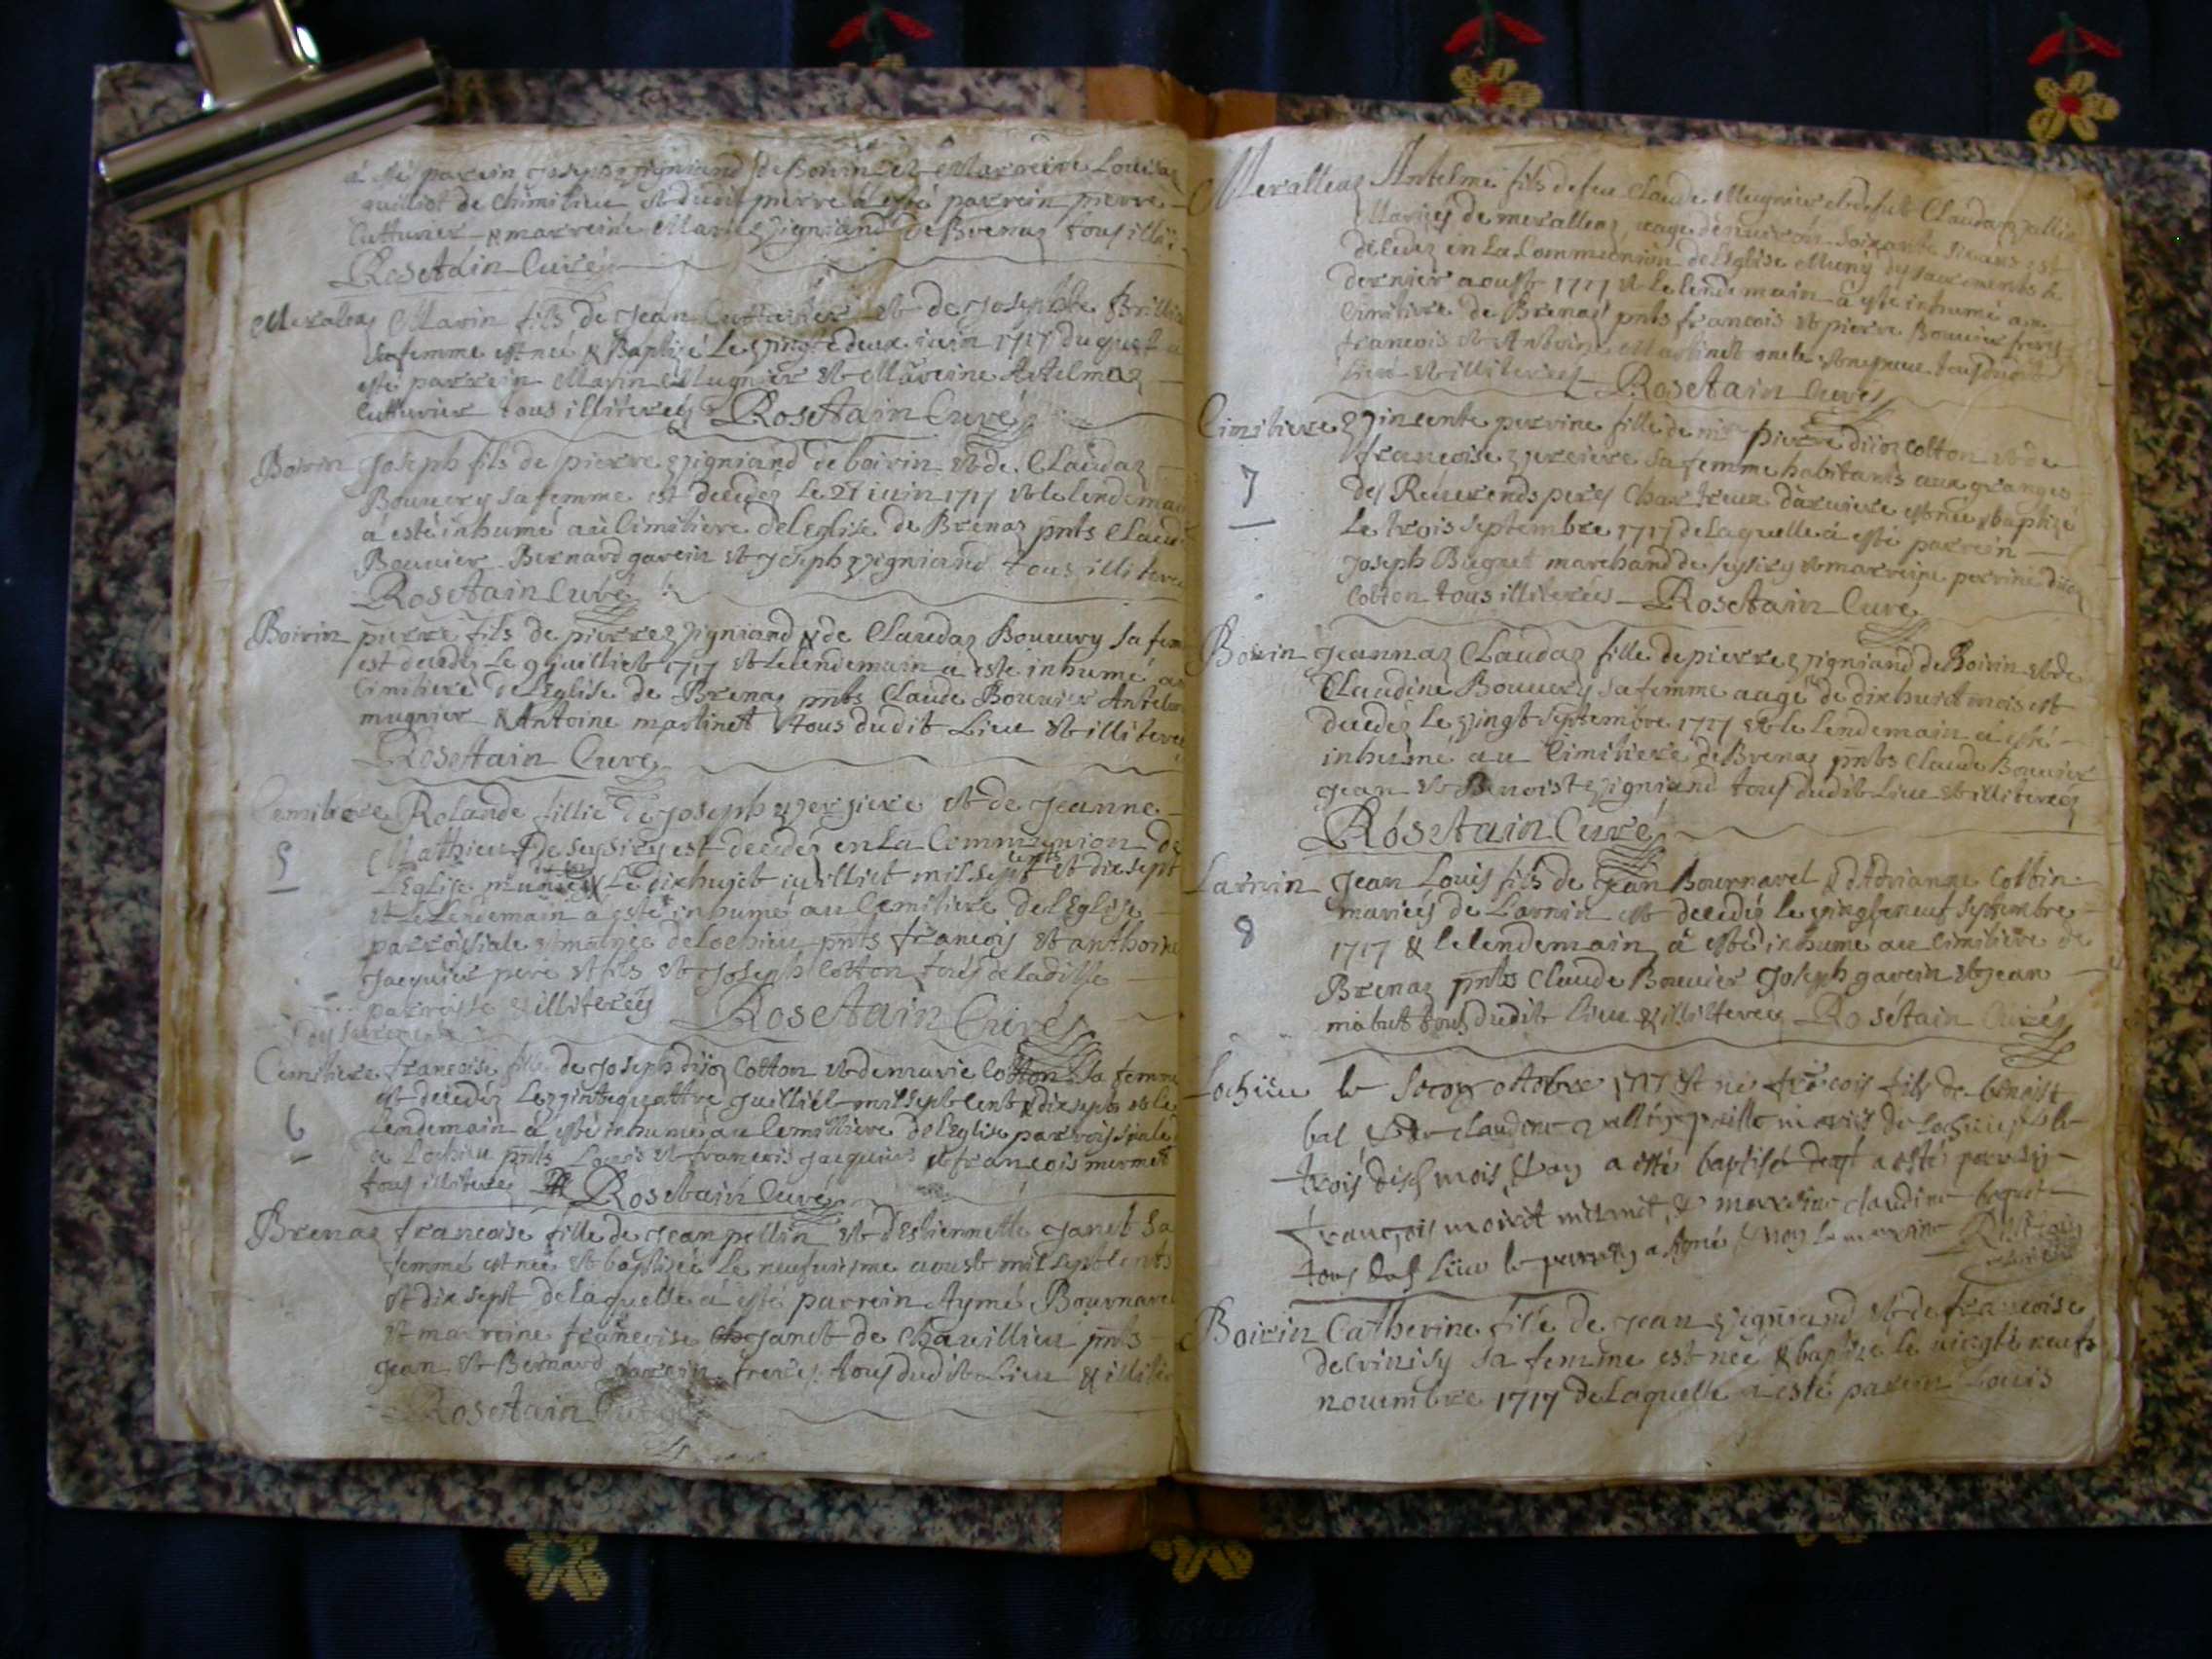 a esté parrein Joseph vigniand de Boirin et Marreine Louise
guilliot de Chimilieu et dudit pierre à esté parrein pierre
Cutturier & marreine Mariez vigniand de Brenaz tous
Rosetain Curé
Meraleaz Marin fils de Jean Cutturier et de Josephte Brillia
sa femme est neé & Baptizé Le vingt deux iuin 1717 duquel a
esté parrein Marin Mugnier et Marreine Antelmaz
Cutturier tous illiterés Rosetain Curé
Boirin Joseph fils de pierre vigniand de boirin et de Claudaz
Bouuery sa femme est decedez Le 27 iuin 1717 et le lendemain
à esté inhumé au Cimitiere de l'Eglise de Brenaz pnts Claude
Bouuier Bernard garein et Joseph vigniand tous illitere
Rosetain Curé
Boirin pierre fils de pierre vigniand & de Claudaz Bouuery sa fem
est decedez Le 9 Juilliet 1717 et Le lendemain a esté inhumé au
Cimitiere de L'Eglise de Brenaz pnts Claude Bouuier Antelme
mugnier & Antoine martinet tous dudit Lieu et illitere
Rosetain Curé
Cemitiere Rolande fillie de Joseph vergiere et de Jeanne
5 Mathieu de Seysizy est decedez en La Communion de
L'Eglise munie Le dixhuict iuilliet mil sept cents et dix sept
et Le Lendemain à esté inhumé au Cemitiere de l'Eglise
parroissiale de Lochieu pnts francois et anthoine
Jacquier pere et fils et Joseph Cotton tous de Laditte
parroisse & illiterés Rosetain Curé
Cemitiere francoise fille de Joseph Cotton et de marie Cotton sa femme
est decedéz Le vintequattre Juilliet mil sept cents & dix sept et le
6 Lendemain à esté inhumé au Cemitiere de l'Eglise parroissiale
a Lochieu pnts Louis et francois Jacquier & francois mermet
tous illiterez Rosetain Curé
Brenaz francoise fille de Jean pellin et d'Estiennette Janet sa
femme est neé et baptizeé Le neufuiesme aoust mil sept cents
et dix sept de laquelle à esté parrein Aymé Bournare
et marreine francoise Janet de Chauillieu pnts
Jean et Bernard garein freres tous dudit Lieu & illiter
Rosetain Curé
Meralleaz Antelme fils de feu Claude Mugnier et de fut Claudaz
Mariés de meralleaz aagé d'enuiron Soixante
decedez en La Communion de l'Eglise Muny des sacrements le
dernier aoust 1717 et Le lendemain à esté inhumé au
Cimitiere de Brenaz pnts francois et pierre Bouuier freres
francois et Antoine Martinet oncle et nepueu tous dudit
Lieu et illiterez Rosetain Curé
Cimitiere Vincente perrine fille de pierre Cotton et de
francoise sa femme habitants aux granges
7 des Reuerends peres Chartreux d'aruiere est neé & baptizé
Le trois septembre 1717 de Laquelle à esté parrein
Joseph Buguet marchand de seysizy et marreine perrine
Cotton tous illiterés Rosetain Curé
Boirin Jeannaz Claudaz fille de pierre vigniand de Boirin et de
Claudine Bouuery sa femme aagé de dixhuit mois est
decedez Le vingt septembre 1717 et le lendemain à esté
inhumé au Cimitiere de Brenaz pnts Claude Bouuier
Jean et Benoist vigniand tous dudit Lieu et illiterez
Rosetain Curé
Larnin Jean Louis fils de Jean Bournarel & d'Adrianne Cottin
mariés de Larnin est decedez le vingt neuf septembre
8 1717 & le lendemain à esté inhumé au Cimitiere de
Brenaz pnts Claude Bouuier Joseph garein et Jean
mabut tous dudit Lieu & illiterez Rosetain Curé
Lochieu le octobre 1717 est né francois fils de benoist
bal & de claudine mariés de Lochieu & le
trois mois, & an a esté baptisé a esté parrein
françois mermet, & marreine claudine
tous dud Lieu le parrein a signé & non la marreine Rosetain
Curé
Boirin Catherine fille de Jean vigniand et de francoise
decrinisy sa femme est neé & baptizé le vingt neufs
nouembre 1717 de Laquelle a esté parrein Louis